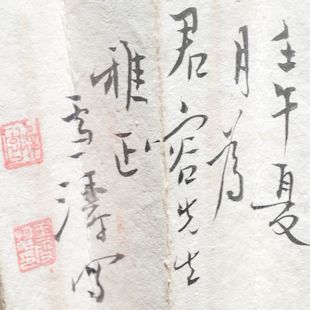 壬午夏
月為
君容先生
雅正
雪濤寫